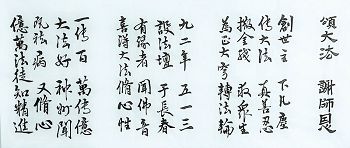 頌大法 謝師恩
創世主 下凡塵
传大法 真善忍
救眾生
為正大穹轉法輪
九二年 五一三
設法壇 于長春
有緣者 聞佛音
喜得大法修心性
一传百 萬传億
大法好 神州聞
既祛病 又脩心
億萬法徒知精進